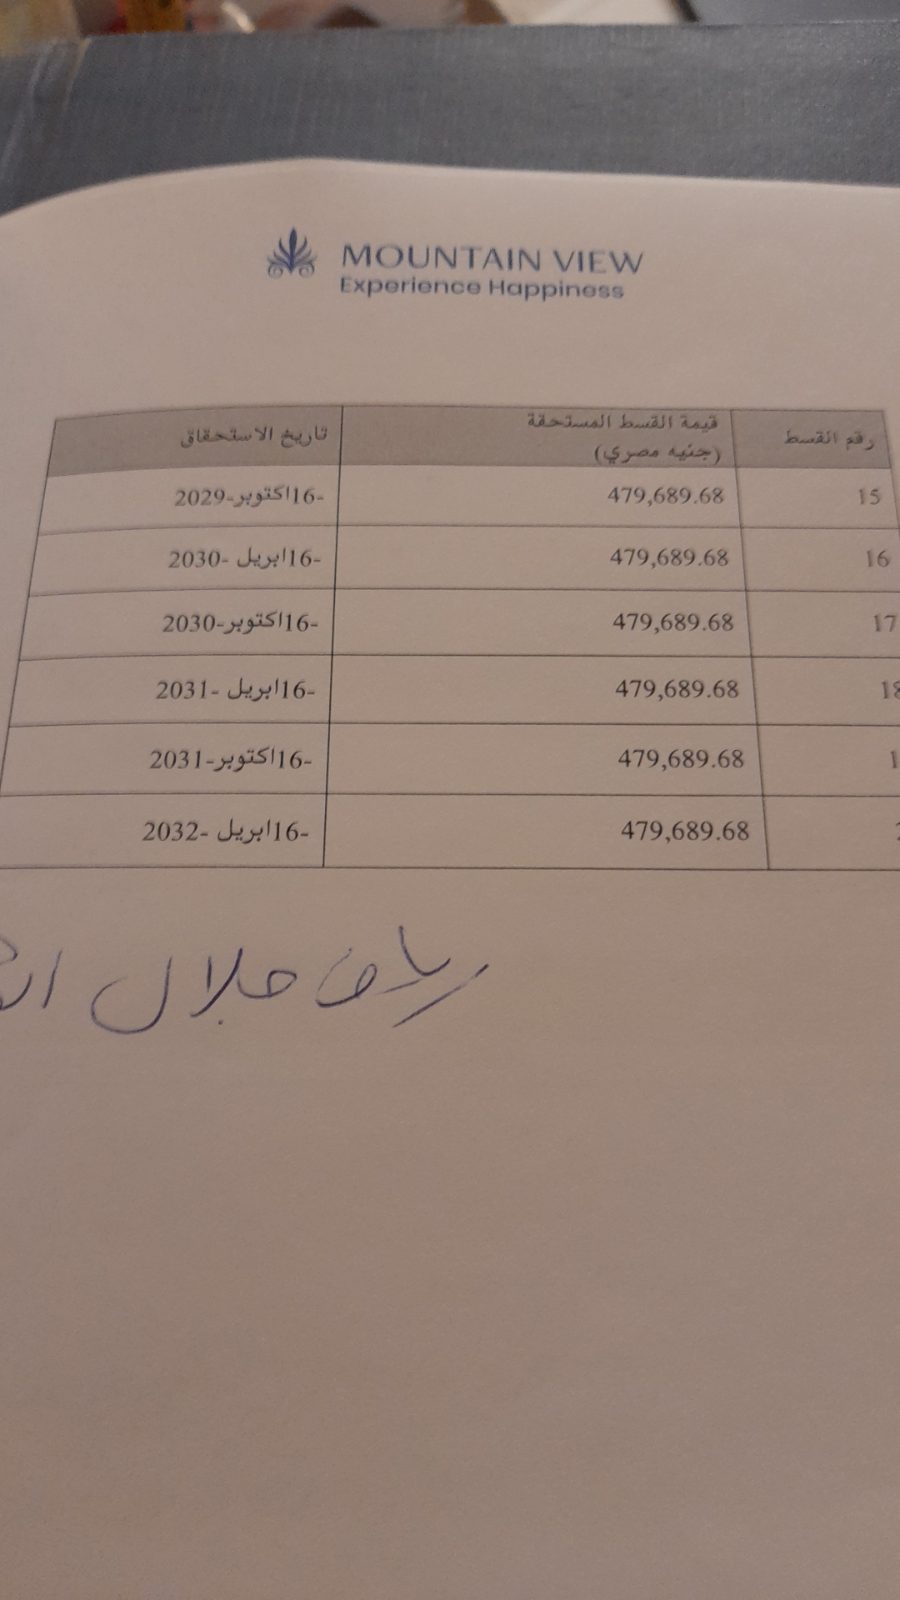 MOUNTAIN VIEW
Experience Happiness
رقم القسط قيمة القسط المستحقة (جنيه مصري) تاريخ الاستحقاق
15 479,689.68 16-اكتوبر-2029
16 479,689.68 16-ابريل -2030
17 479,689.68 16-اكتوبر-2030
18 479,689.68 16-ابريل -2031
479,689.68 16-اكتوبر-2031
479,689.68 16-ابريل -2032
جلال